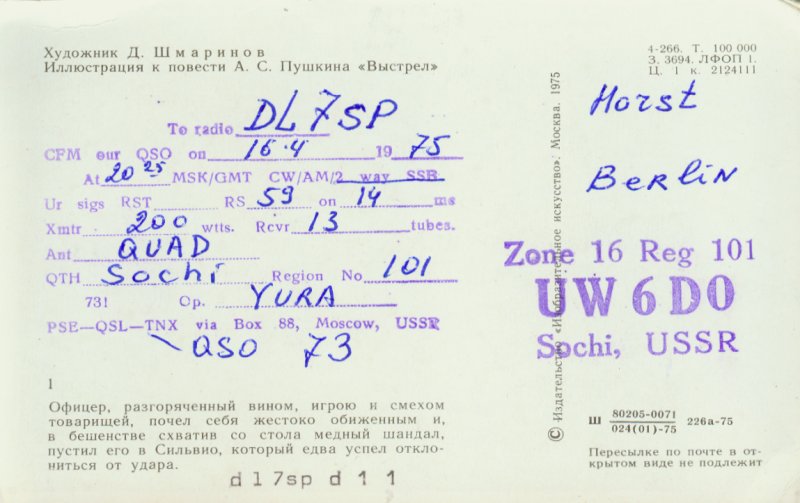 Художник Д. Шмаринов
Иллюстрация к повести А. С. Пушкина «Выстрел»
4-266. Т. 100 000
З. 3694. ЛФОП 1.
Ц. 1 к. 2124111
To radio DL7SP
CFM our QSO on 16.4 19 75
At 20 25 MSK/GMT CW/AM/2 way SSB
Ur sigs RST RS 59 on 14 ms
Xmtr 200 wtts. Rcvr 13 tubes.
Ant QUAD
QTH Sochi Region No 101
73! Op. YURA
PSE—QSL—TNX via Box 88, Moscow, USSR
QSO 73
1
Офицер, разгоряченный вином, игрою и смехом
товарищей, почел себя жестоко обиженным и,
в бешенстве схватив со стола медный шандал,
пустил его в Сильвио, который едва успел откло-
ниться от удара.
dl7sp d 1 1
© Издательство «Изобразительное искусство». Москва. 1975
Horst
Berlin
Zone 16 Reg 101
UW6DO
Sochi, USSR
Ш 80205-0071
024(01)-75 226а-75
Пересылке по почте в от-
крытом виде не подлежит